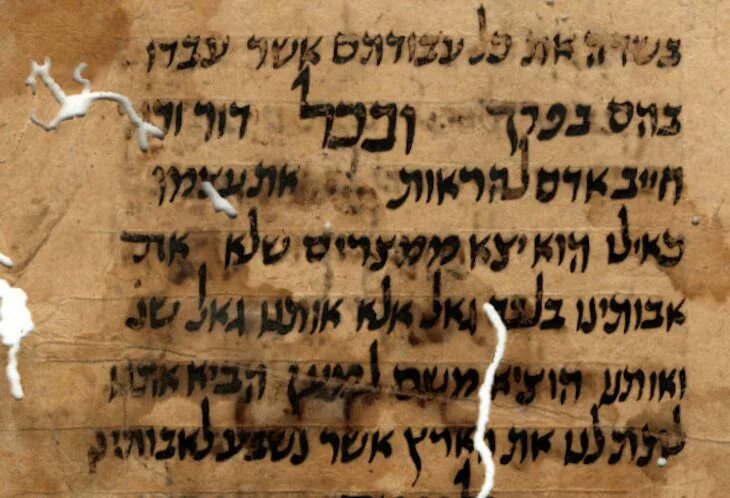 בשדה את כל עבודתם אשר עבדו
בהם בפרך ובכל דור ודור
חייב אדם להראות את עצמו
כאילו הוא יצא ממצרים שלא את
אבותינו בלבד גאל אלא אותנו גאל
ואותנו הוציא משם למען הביא אותנו
לתת לנו את הארץ אשר נשבע לאבותינו